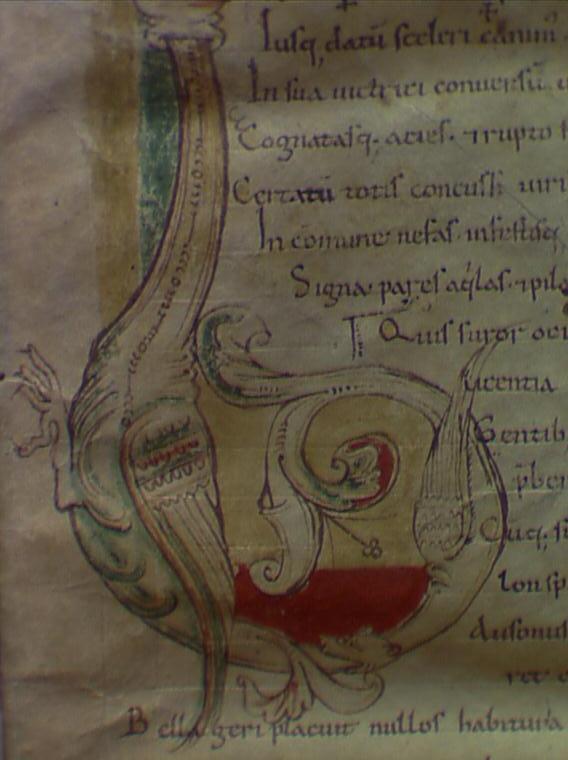 Iusq; datū sceleri canimꝰ
In sua uictrici conuersū
Cognatasq; acies. ⁊ rupto
Certatū totis concussi uiri
In cōmune nefas. infestisq;
Signa. pares aq̇las. ⁊ pila
Quis furor o ci
licentia
Gentib;
p̄ber
Cūq; 
Ausoniis
Bella geri placuit nullos habitura